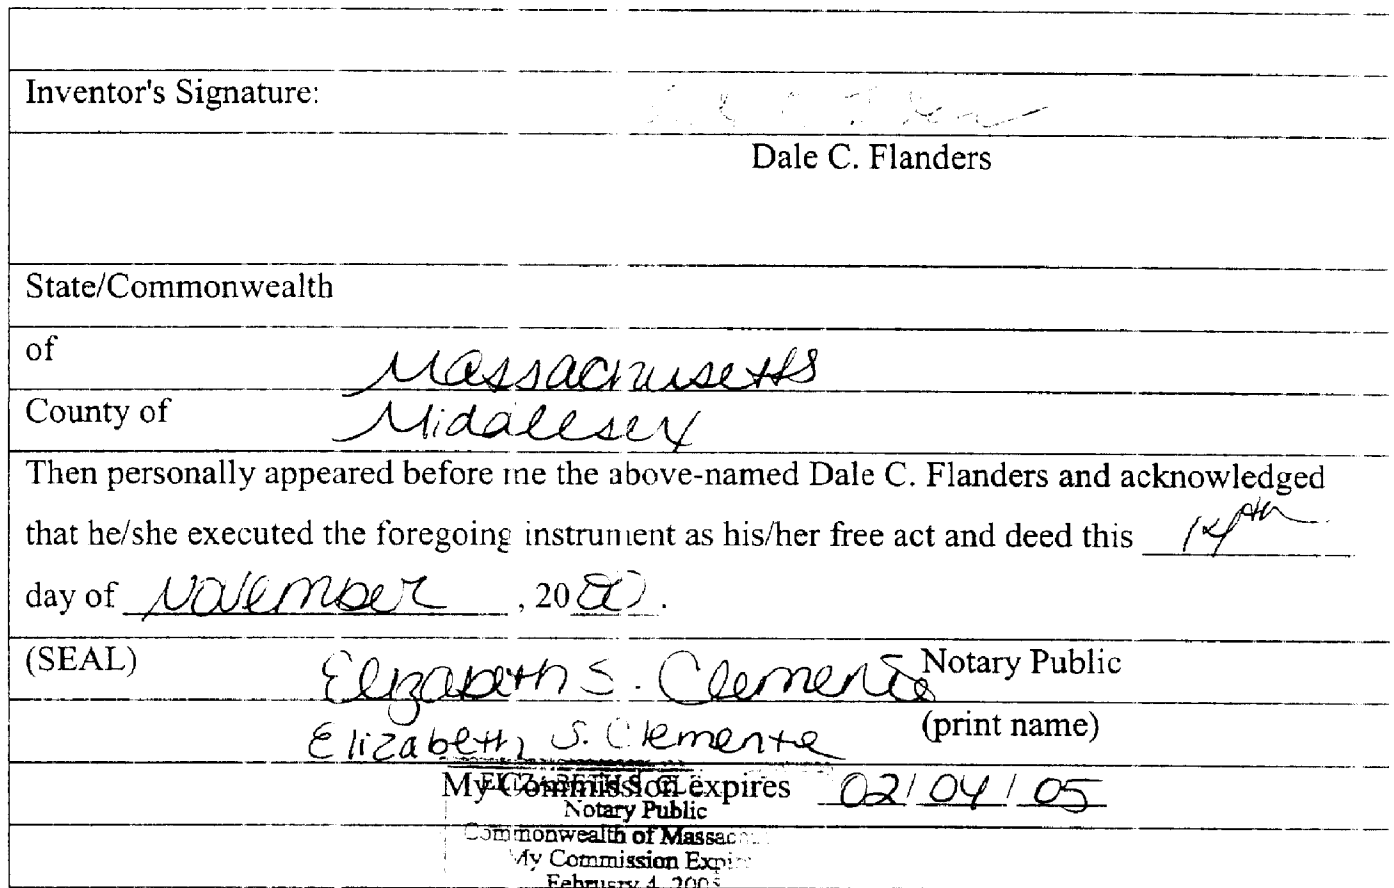 Inventor's Signature:
Dale C. Flanders
State/Commonwealth
of Massachusetts
County of Middlesex
Then personally appeared before me the above-named Dale C. Flanders and acknowledged
that he/she executed the foregoing instrument as his/her free act and deed this 14th
day of November, 2000.
(SEAL) Elizabeth S. Clemente Notary Public
Elizabeth S. Clemente (print name)
My Commission expires 02/04/05
ELIZABETH S. CLE
Notary Public
Commonwealth of Massac
My Commission Expire
February 4, 2005